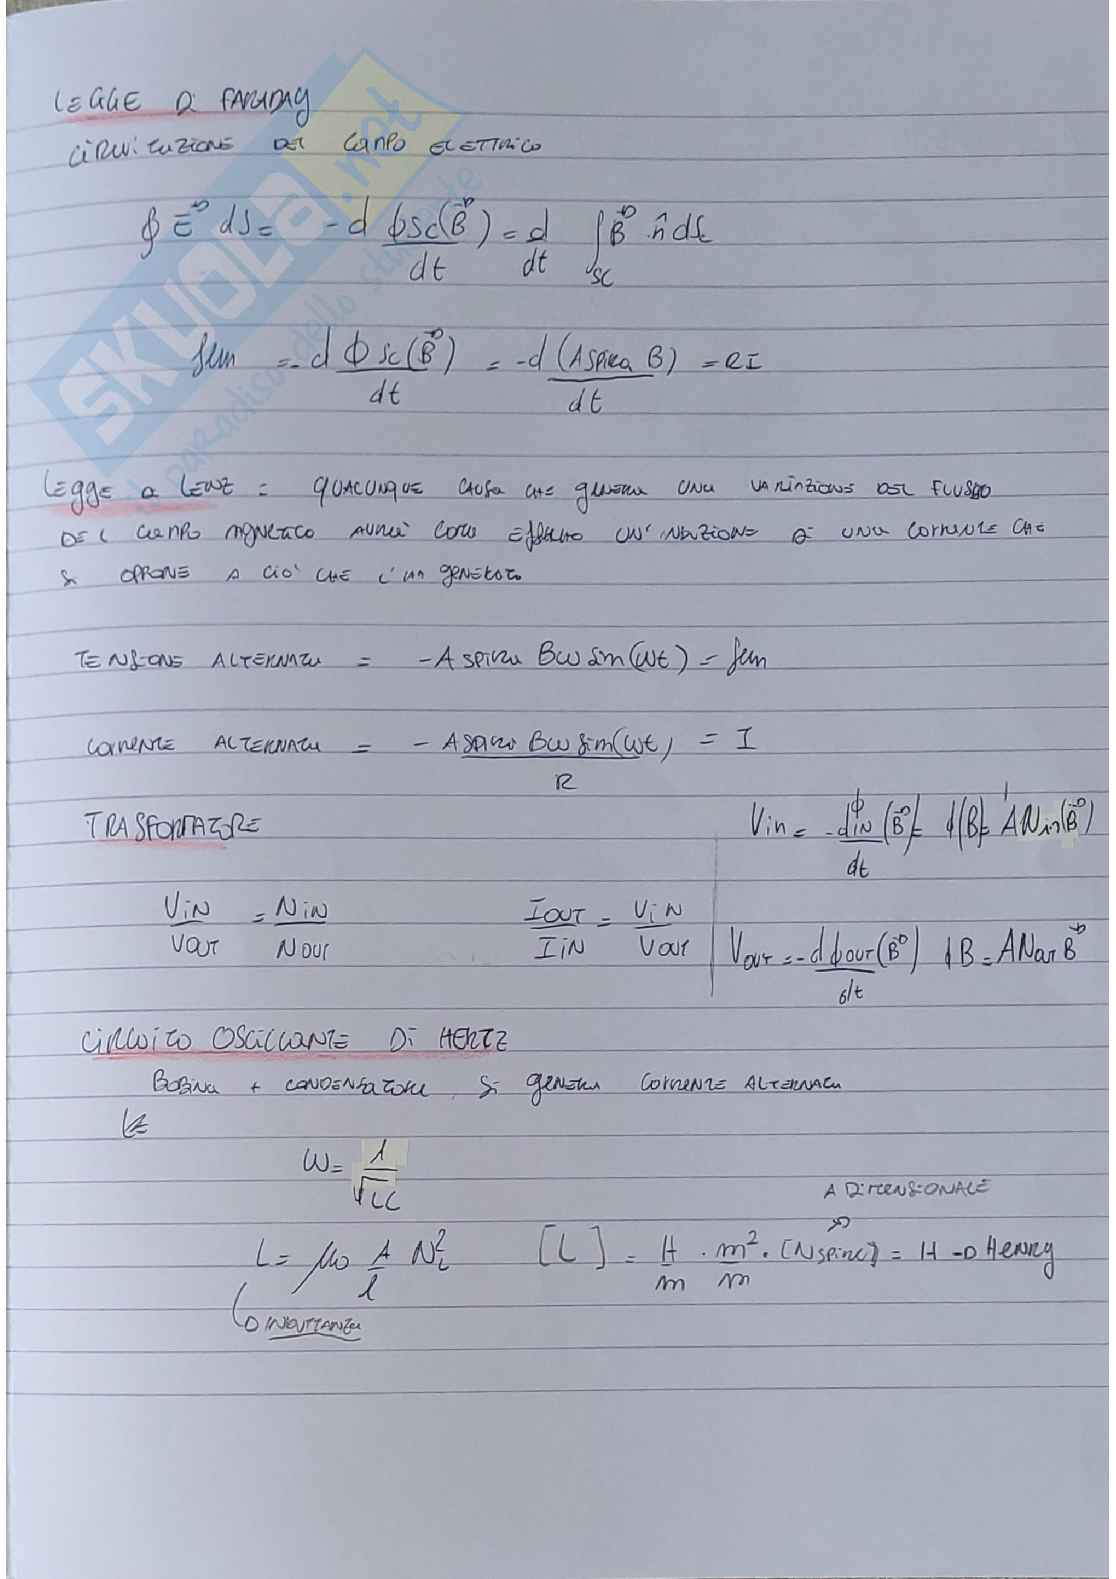 LEGGE DI FARADAY
CIRCUITAZIONE DEL CAMPO ELETTRICO
∮ E⃗ ds = -d ϕsc(B⃗)/dt = d/dt ∫sc B⃗ · n̂ ds
fem = -d ϕsc(B⃗)/dt = -d (Aspira B)/dt = RI
LEGGE DI LENZ = QUALUNQUE CAUSA CHE GENERA UNA VARIAZIONE DEL FLUSSO
DEL CAMPO MAGNETICO AVRÀ COME EFFETTO UN' INDUZIONE DI UNA CORRENTE CHE
SI OPPONE A CIÒ CHE L'HA GENERATO
TENSIONE ALTERNATA = -Aspira Bω sin(ωt) = fem
CORRENTE ALTERNATA = - Aspira Bω sin(ωt)/R = I
TRASFORMATORE
Vin = -dϕIN(B⃗)/dt ϕ(B)= A Nin(B⃗)
VIN/VOUT = NIN/NOUT IOUT/IIN = VIN/VOUT
VOUT = -d ϕOUT(B⃗)/dt ϕB = A NOUT B⃗
CIRCUITO OSCILLANTE DI HERTZ
BOBINA + CONDENSATORE SI GENERA CORRENTE ALTERNATA
ω = 1/√LC
A DIMENSIONALE
L = μ0 A/l N² [L] = H/m · m²/m · [Nspire] = H → HENRY
INDUTTANZA
SKUOLA.net
paradiso dello studente